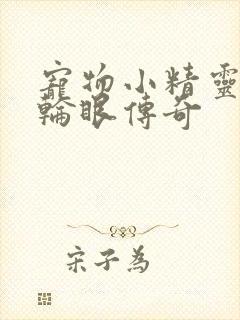 寵物小精靈
輪眼傳奇
宋子為